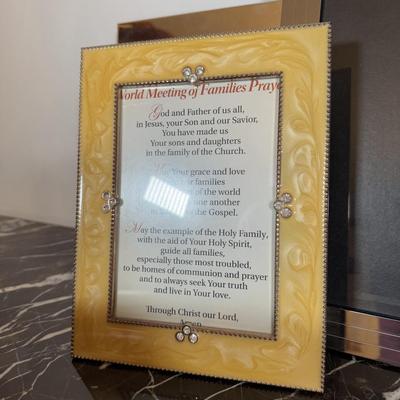 World Meeting of Families Prayer
God and Father of us all,
in Jesus, your Son and our Savior,
You have made us
Your sons and daughters
in the family of the Church.
Your grace and love
families
of the world
one another
of the Gospel.
May the example of the Holy Family,
with the aid of Your Holy Spirit,
guide all families,
especially those most troubled,
to be homes of communion and prayer
and to always seek Your truth
and live in Your love.
Through Christ our Lord,
Amen